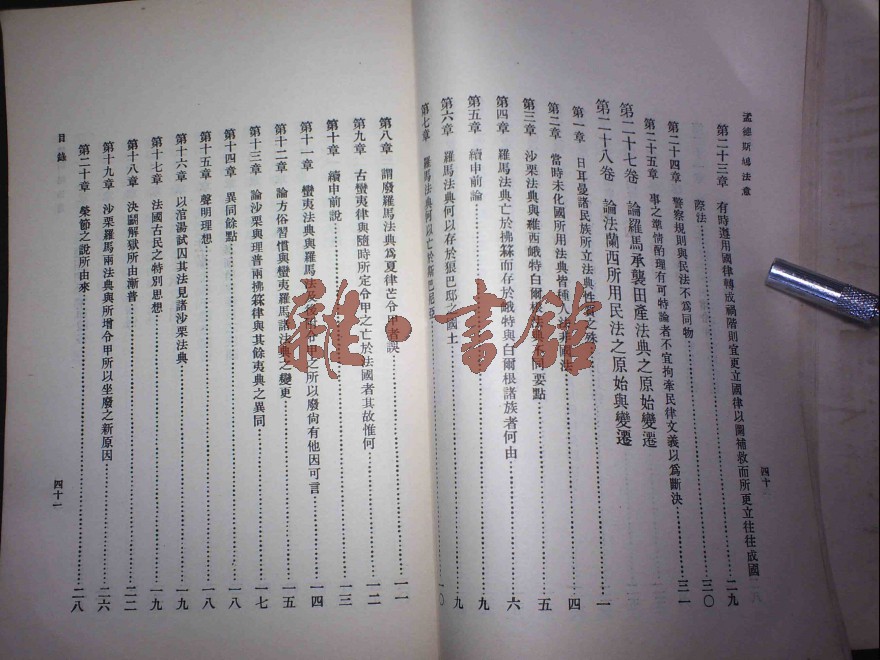 孟德斯鳩法意
四十
第二十三章 有時遵用國律轉成禍階則宜更立國律以圖補救而所更立往往成國
際法 二九
第二十四章 警察規則與民法不爲同物 三〇
第二十五章 事之準情酌理有可特論者不宜拘牽民律文義以爲斷決 三一
第二十七卷 論羅馬承襲田產法典之原始變遷
第二十八卷 論法蘭西所用民法之原始與變遷
第一章 日耳曼諸民族所立法典性質之殊 一
第二章 當時未化國所用法典皆種人法非國法 四
第三章 沙栗法典與維西峨特白爾根法典不同要點 五
第四章 羅馬法典亡於拂箖而存於峨特與白爾根諸族者何由 六
第五章 續申前論 九
第六章 羅馬法典何以存於狼巴邸之國土 九
第七章 羅馬法典何以亡於斯巴尼亞 一〇
第八章 謂廢羅馬法典爲夏律芒令甲者誤 一一
第九章 古蠻夷律與隨時所定令甲之亡於法國者其故惟何 一二
第十章 續申前說 一三
第十一章 蠻夷法典與羅馬法及後附令甲之所以廢尙有他因可言 一四
第十二章 論方俗習慣與蠻夷羅馬諸法典之變更 一五
第十三章 論沙栗與理普兩拂箖律與其餘夷典之異同 一七
第十四章 異同餘點 一八
第十五章 聲明理想 一八
第十六章 以涫湯試囚其法見諸沙栗法典 一九
第十七章 法國古民之特別思想 一九
第十八章 決鬬解獄所由漸普 二二
第十九章 沙栗羅馬兩法典與所增令甲所以坐廢之新原因 二六
第二十章 榮節之說所由來 二八
目錄
四十一
雜·書館